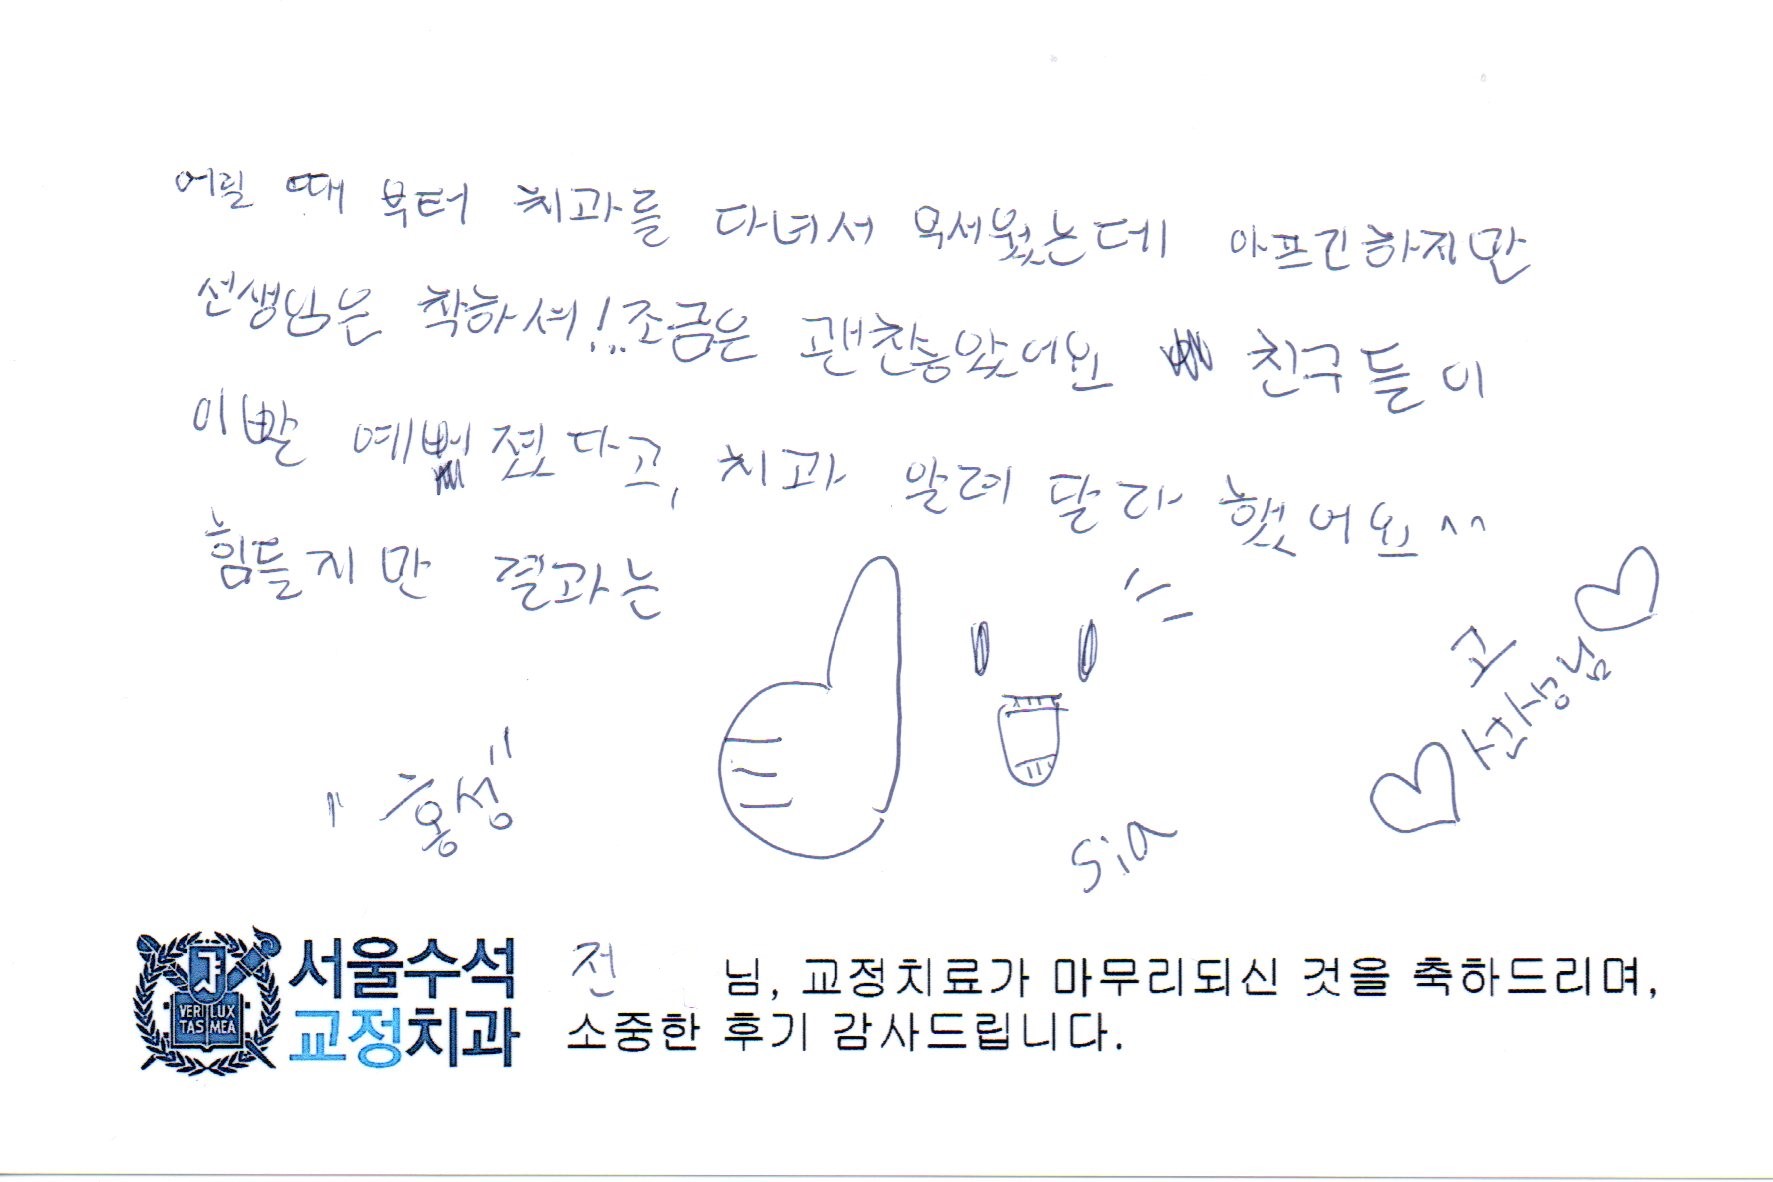 어릴 때 부터 치과를 다녀서 무세웠는데 아프긴하지만
선생님은 착하셔!.. 조금은 괜찮았어요 친구들이
이빨 예뻐졌다고, 치과 알려 달라 했어요^^
힘들지만 결과는
고
선생님
"홍성"
Sia
서울수석
교정치과
VERI LUX
TAS MEA
전 님, 교정치료가 마무리되신 것을 축하드리며,
소중한 후기 감사드립니다.